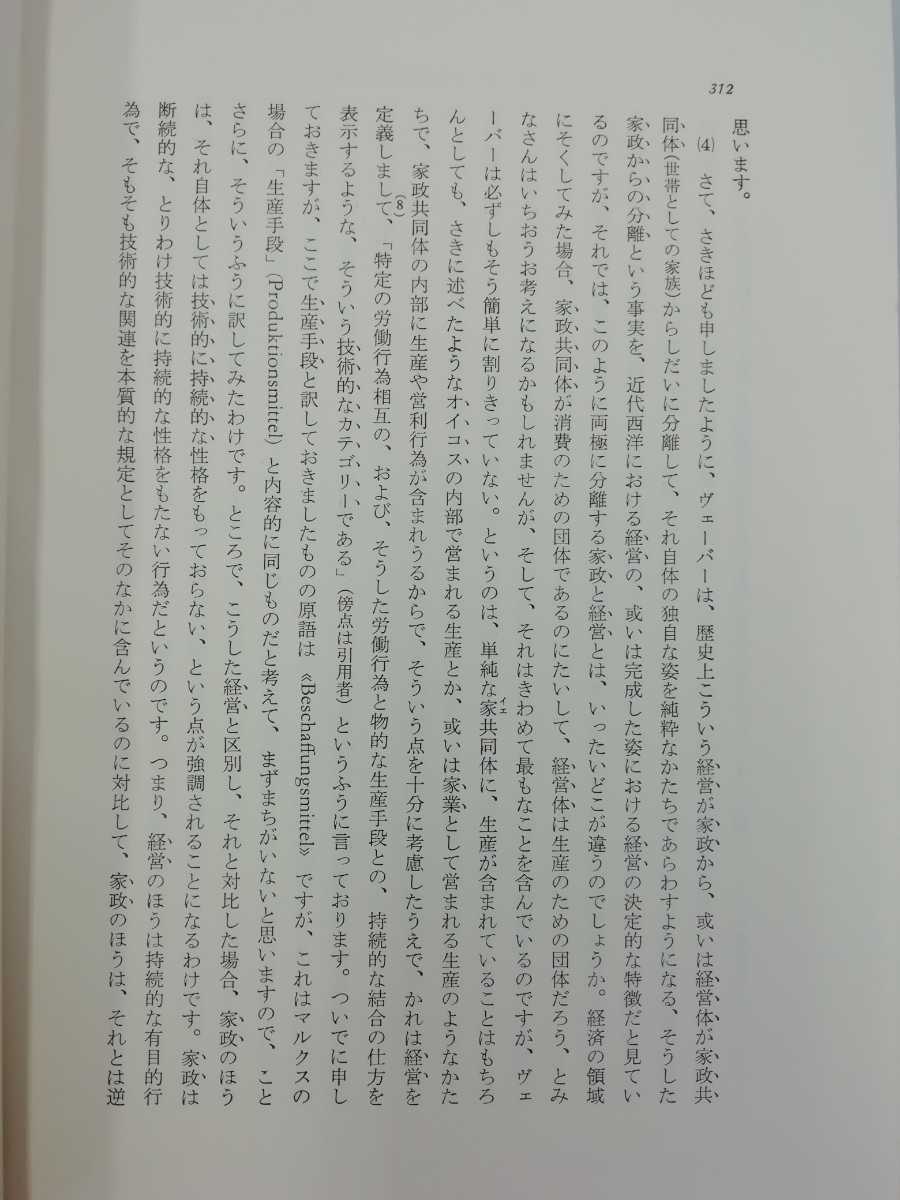 312
思います。
(4) さて、さきほども申しましたように、ヴェーバーは、歴史上こういう経営が家政から、或いは経営体が家政共
同体(世帯としての家族)からしだいに分離して、それ自体の独自な姿を純粋なかたちであらわすようになる、そうした
家政からの分離という事実を、近代西洋における経営の、或いは完成した姿における経営の決定的な特徴だと見てい
るのですが、それでは、このように両極に分離する家政と経営とは、いったいどこが違うのでしょうか。経済の領域
にそくしてみた場合、家政共同体が消費のための団体であるのにたいして、経営体は生産のための団体だろう、とみ
なさんはいちおうお考えになるかもしれませんが、そして、それはきわめて最もなことを含んでいるのですが、ヴェ
ーバーは必ずしもそう簡単に割りきっていない。というのは、単純な家イエ共同体に、生産が含まれていることはもちろ
んとしても、さきに述べたようなオイコスの内部で営まれる生産とか、或いは家業として営まれる生産のようなかた
ちで、家政共同体の内部に生産や営利行為が含まれうるからで、そういう点を十分に考慮したうえで、かれは経営を
定義しまして、(8)「特定の労働行為相互の、および、そうした労働行為と物的な生産手段との、持続的な結合の仕方を
表示するような、そういう技術的なカテゴリーである」(傍点は引用者)というふうに言っております。ついでに申し
ておきますが、ここで生産手段と訳しておきましたものの原語は《Beschaffungsmittel》ですが、これはマルクスの
場合の「生産手段」(Produktionsmittel)と内容的に同じものだと考えて、まずまちがいないと思いますので、こと
さらに、そういうふうに訳してみたわけです。ところで、こうした経営と区別し、それと対比した場合、家政のほう
は、それ自体としては技術的に持続的な性格をもっておらない、という点が強調されることになるわけです。家政は
断続的な、とりわけ技術的に持続的な性格をもたない行為だというのです。つまり、経営のほうは持続的な有目的行
為で、そもそも技術的な関連を本質的な規定としてそのなかに含んでいるのに対比して、家政のほうは、それとは逆